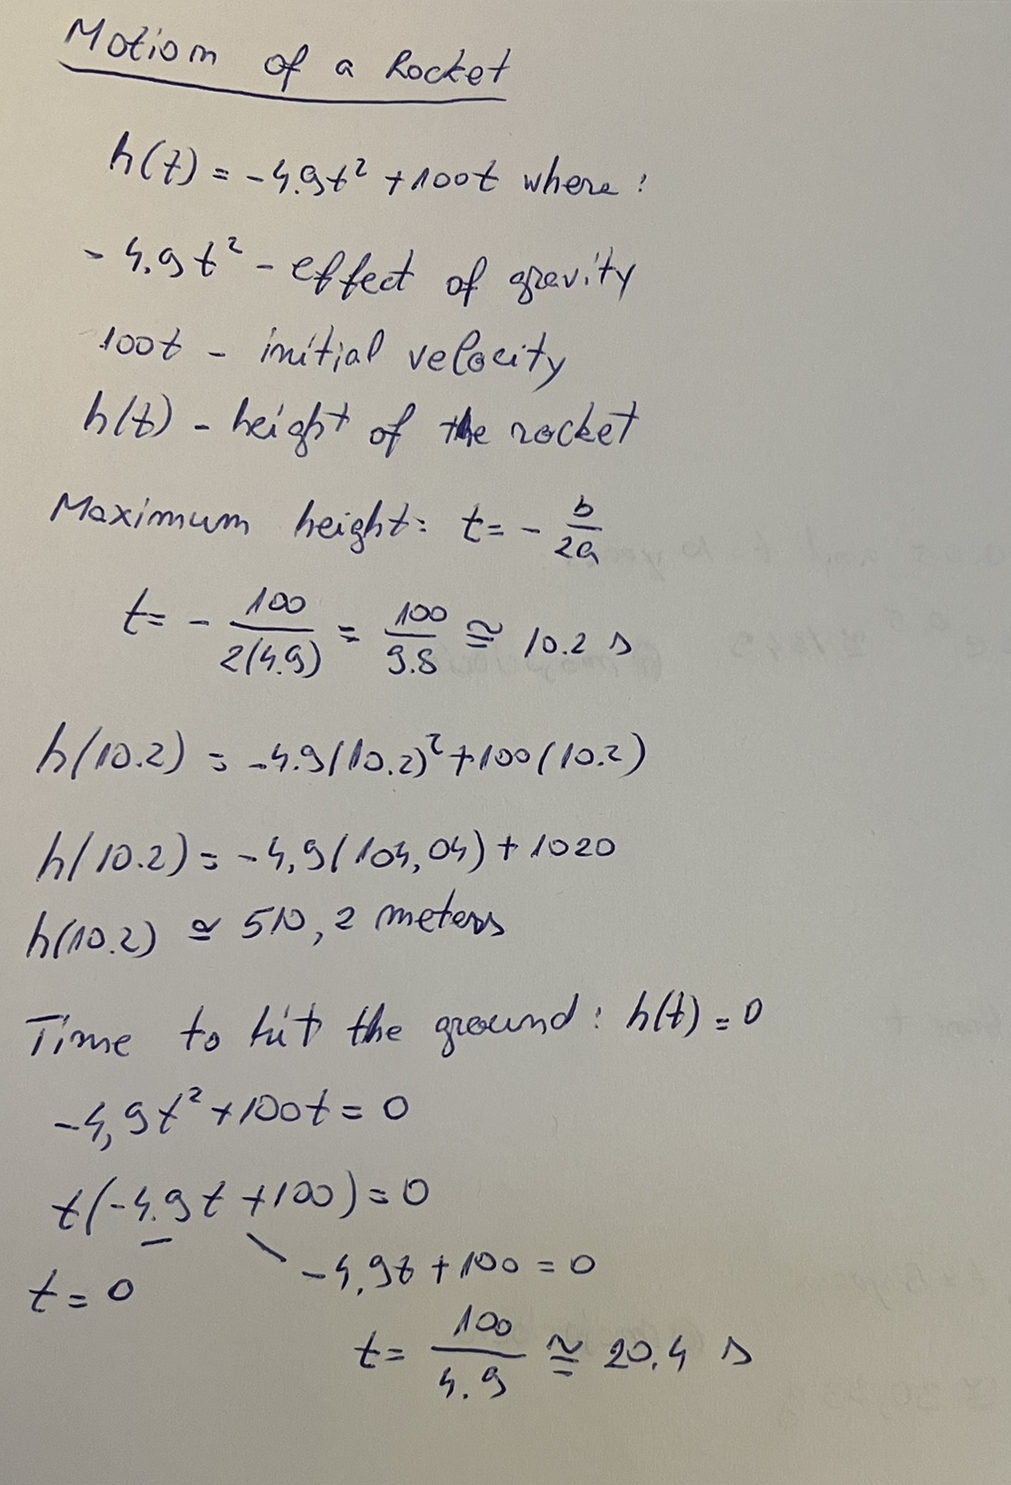 Motion of a Rocket
h(t) = -4.9t² + 100t where:
- 4.9t² - effect of gravity
100t - initial velocity
h(t) - height of the rocket
Maximum height: t = - b/2a
t = - 100/2(4.9) = 100/9.8 ≅ 10.2 s
h(10.2) = -4.9(10.2)² + 100(10.2)
h(10.2) = -4,9(104,04) + 1020
h(10.2) ≅ 510,2 meters
Time to hit the ground: h(t) = 0
-4,9t² + 100t = 0
t(-4.9t + 100) = 0
t = 0
-4,9t + 100 = 0
t = 100/4.9 ≅ 20.4 s